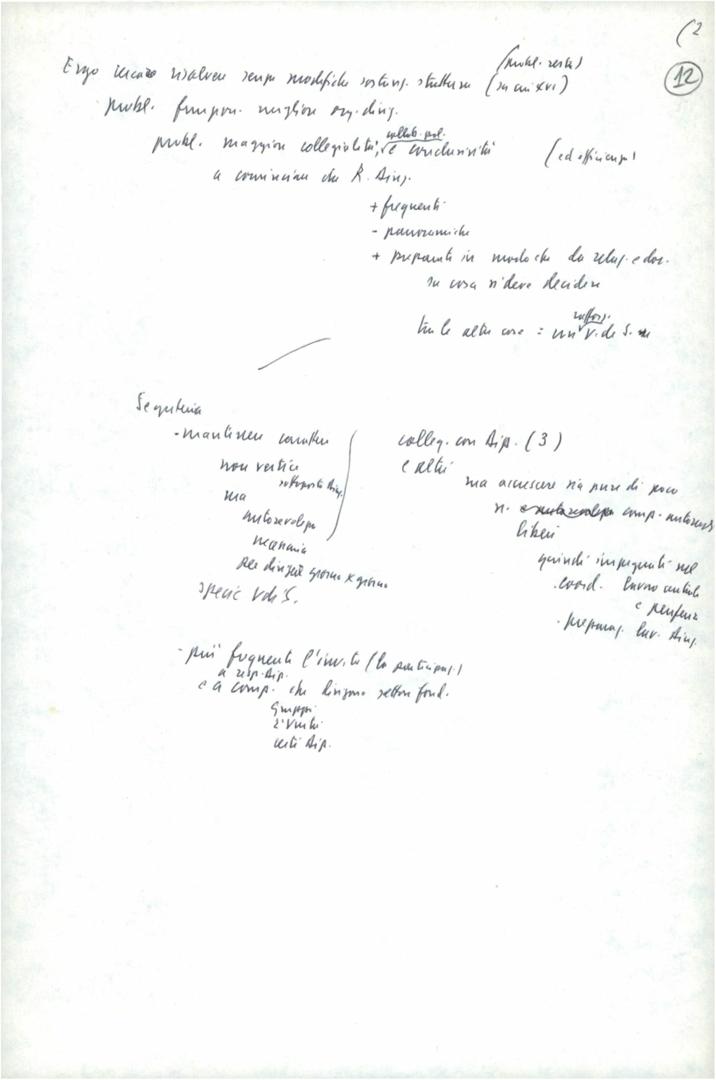 (2
12
(probl. resta)
Ergo risolvere senza modifiche sostanz. struttura (su cui XVI)
probl. funzion. migliore org. dirig.
collab. pol.
probl. maggiore collegialità, e conclusività (ed efficienza)
a cominciare da R. Dir.
+ frequenti
- panoramiche
+ preparate in modo che da relaz. e doc.
su cosa si deve decidere
rafforz.
tra le altre cose = un V. de S.
Segreteria
- mantenere carattere
non vertice
sottoposto Dir.
ma
autorevolezza
necessaria
per dirigere giorno x giorno
specie V de S.
colleg. con Dip. (3)
e altri
ma accrescere sia pure di poco
n. comp. autorevoli
liberi
quindi impegnati nel
coord. lavoro centrale
e periferia
. preparaz. lav. Direz.
- più frequente l'invito (la partecipaz.)
a resp. Dip.
e a comp. che dirigono settori fond.
Gruppi
L'Unità
certi Dip.